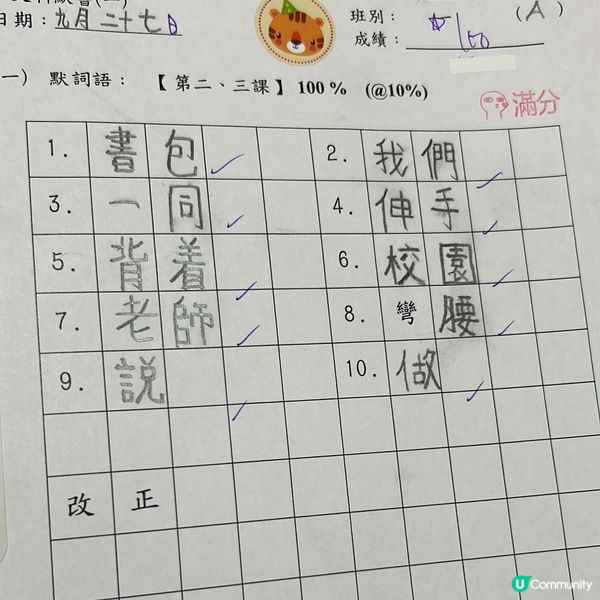 日期：九月二十七日
班別：
(A)
成績：
一） 默詞語： 【第二、三課】100% (@10%)
滿分
1. 書包 2. 我們
3. 一同 4. 伸手
5. 背着 6. 校園
7. 老師 8. 彎腰
9. 說 10. 做
改正
U Community